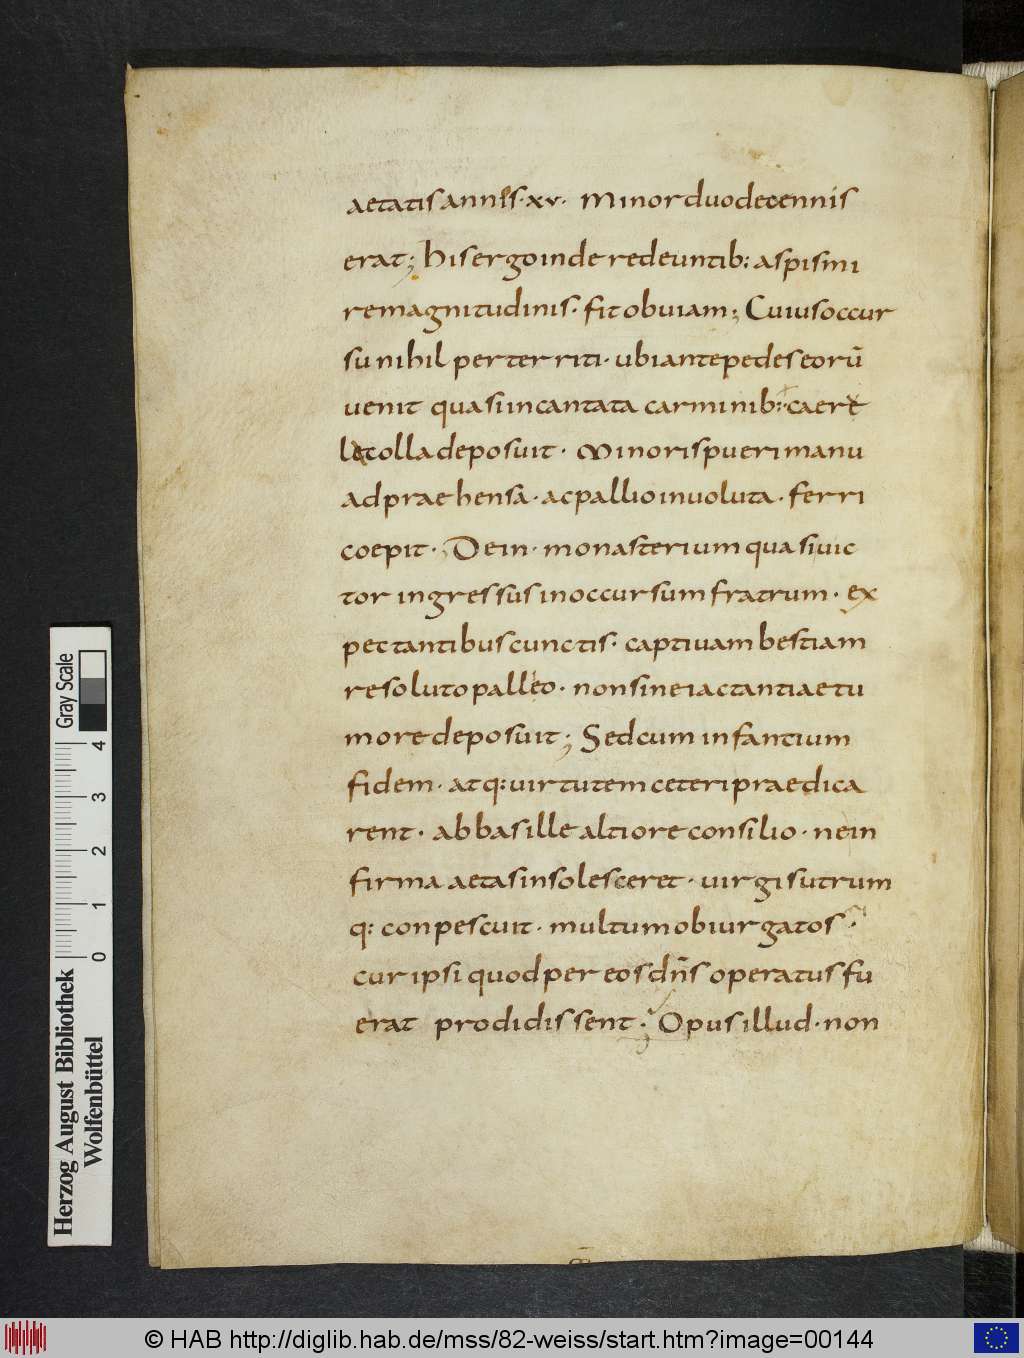 aetatis annis · xv · Minor duodecennis
erat; his ergo inde redeuntib: aspis mi
re magnitudinis · fit obuiam; Cuius occur
su nihil perterriti · ubi ante pedes eorū
uenit quasi incantata carminib: caere
let colla deposuit · Minoris pueri manu
adpraehensa · ac pallio inuoluta · ferri
coepit · Dein · monasterium quasi uic
tor ingressus in occursum fratrum · ex
pectantibus cunctis · captiuam bestiam
resoluto palleo · non sine iactantiae tu
more deposuit; Sed cum infantium
fidem · atq: uirtutem ceteri praedica
rent · abbas ille altiore consilio · ne in
firma aetas insolesceret · uirgis utrum
q: conpescuit · multum obiurgatos ·
cur ipsi quod per eos dn̄s operatus fu
erat prodidissent · Opus illud · non
Gray Scale
4
3
2
1
0
Herzog August Bibliothek
Wolfenbüttel
© HAB http://diglib.hab.de/mss/82-weiss/start.htm?image=00144